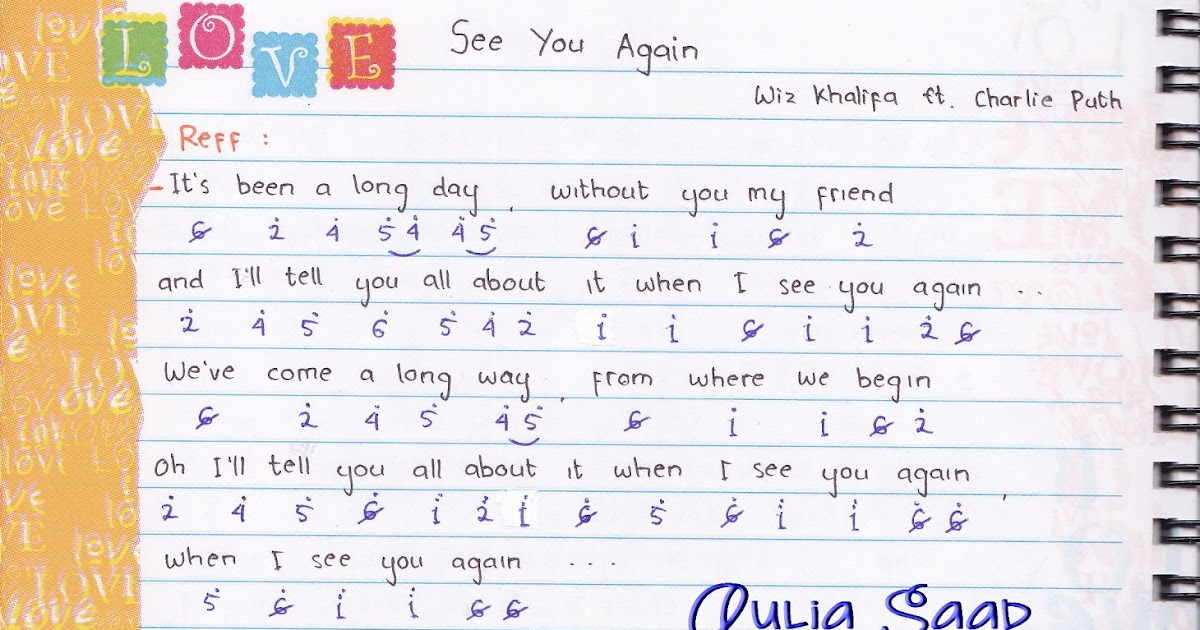 LOVE See You Again
Wiz Khalifa ft. Charlie Puth
Reff :
- It's been a long day, without you my friend
6̸ 2̇ 4̇ 5̇ 4̇ 4̇ 5̇ 6̸ 1̇ 1̇ 6̸ 2̇
and I'll tell you all about it when I see you again ...
2̇ 4̇ 5̇ 6̇ 5̇ 4̇ 2̇ 1̇ 1̇ 6̸ 1̇ 1̇ 2̇ 6̸
We've come a long way, from where we begin
6̸ 2̇ 4̇ 5̇ 4̇ 5̇ 6̸ 1̇ 1̇ 6̸ 2̇
Oh I'll tell you all about it when I see you again,
2̇ 4̇ 5̇ 6̸̇ 1̇ 2̇ 1̇ 6̸̇ 5̇ 6̸̇ 1̇ 1̇ 6̸̇ 6̸̇
when I see you again ....
5̇ 6̸̇ 1̇ 1̇ 6̸ 6̸
Aulia Saad